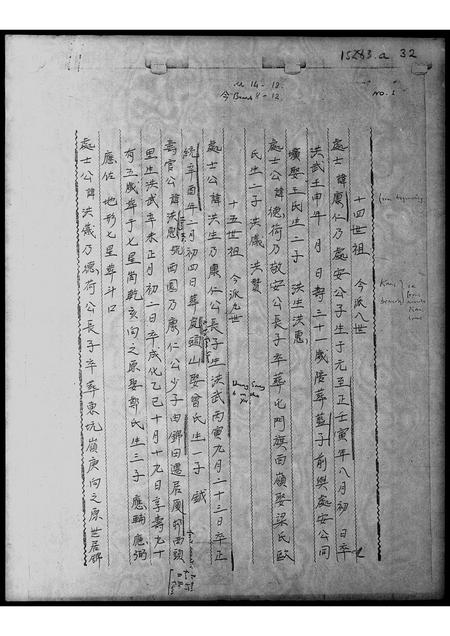 15283.a 32
NO. 1
十四世祖 今派八世
處士公諱康仁乃處安公子生于元至正壬寅年八月初 日卒
洪武壬申年 月 日壽三十一歲陵葬藍子前與處安公同
壙娶王氏生二子 洪生洪惠
處士公諱德荷乃敬安公長子卒葬屯門旗面嶺娶梁氏歐
氏生二子 洪儀 洪贊
十五世祖 今派九世
處士公諱洪生乃康仁公長子生洪武丙寅九月二十三日卒正
統辛酉年二月初四日葬 頭山娶曾氏生一子 鉞
壽官公諱洪惠號西園乃康仁公少子由錦田遷居廈邨西頭
里生洪武辛未正月初二日卒成化乙巳十月十九日享壽九十
有五歲葬于七星崗乾亥向之原娶鄭氏生三子 應輔應弼
應佐 地形七星葬斗口
處士公諱洪儀乃德荷公長子卒葬東坑嶺庚向之原世居錦